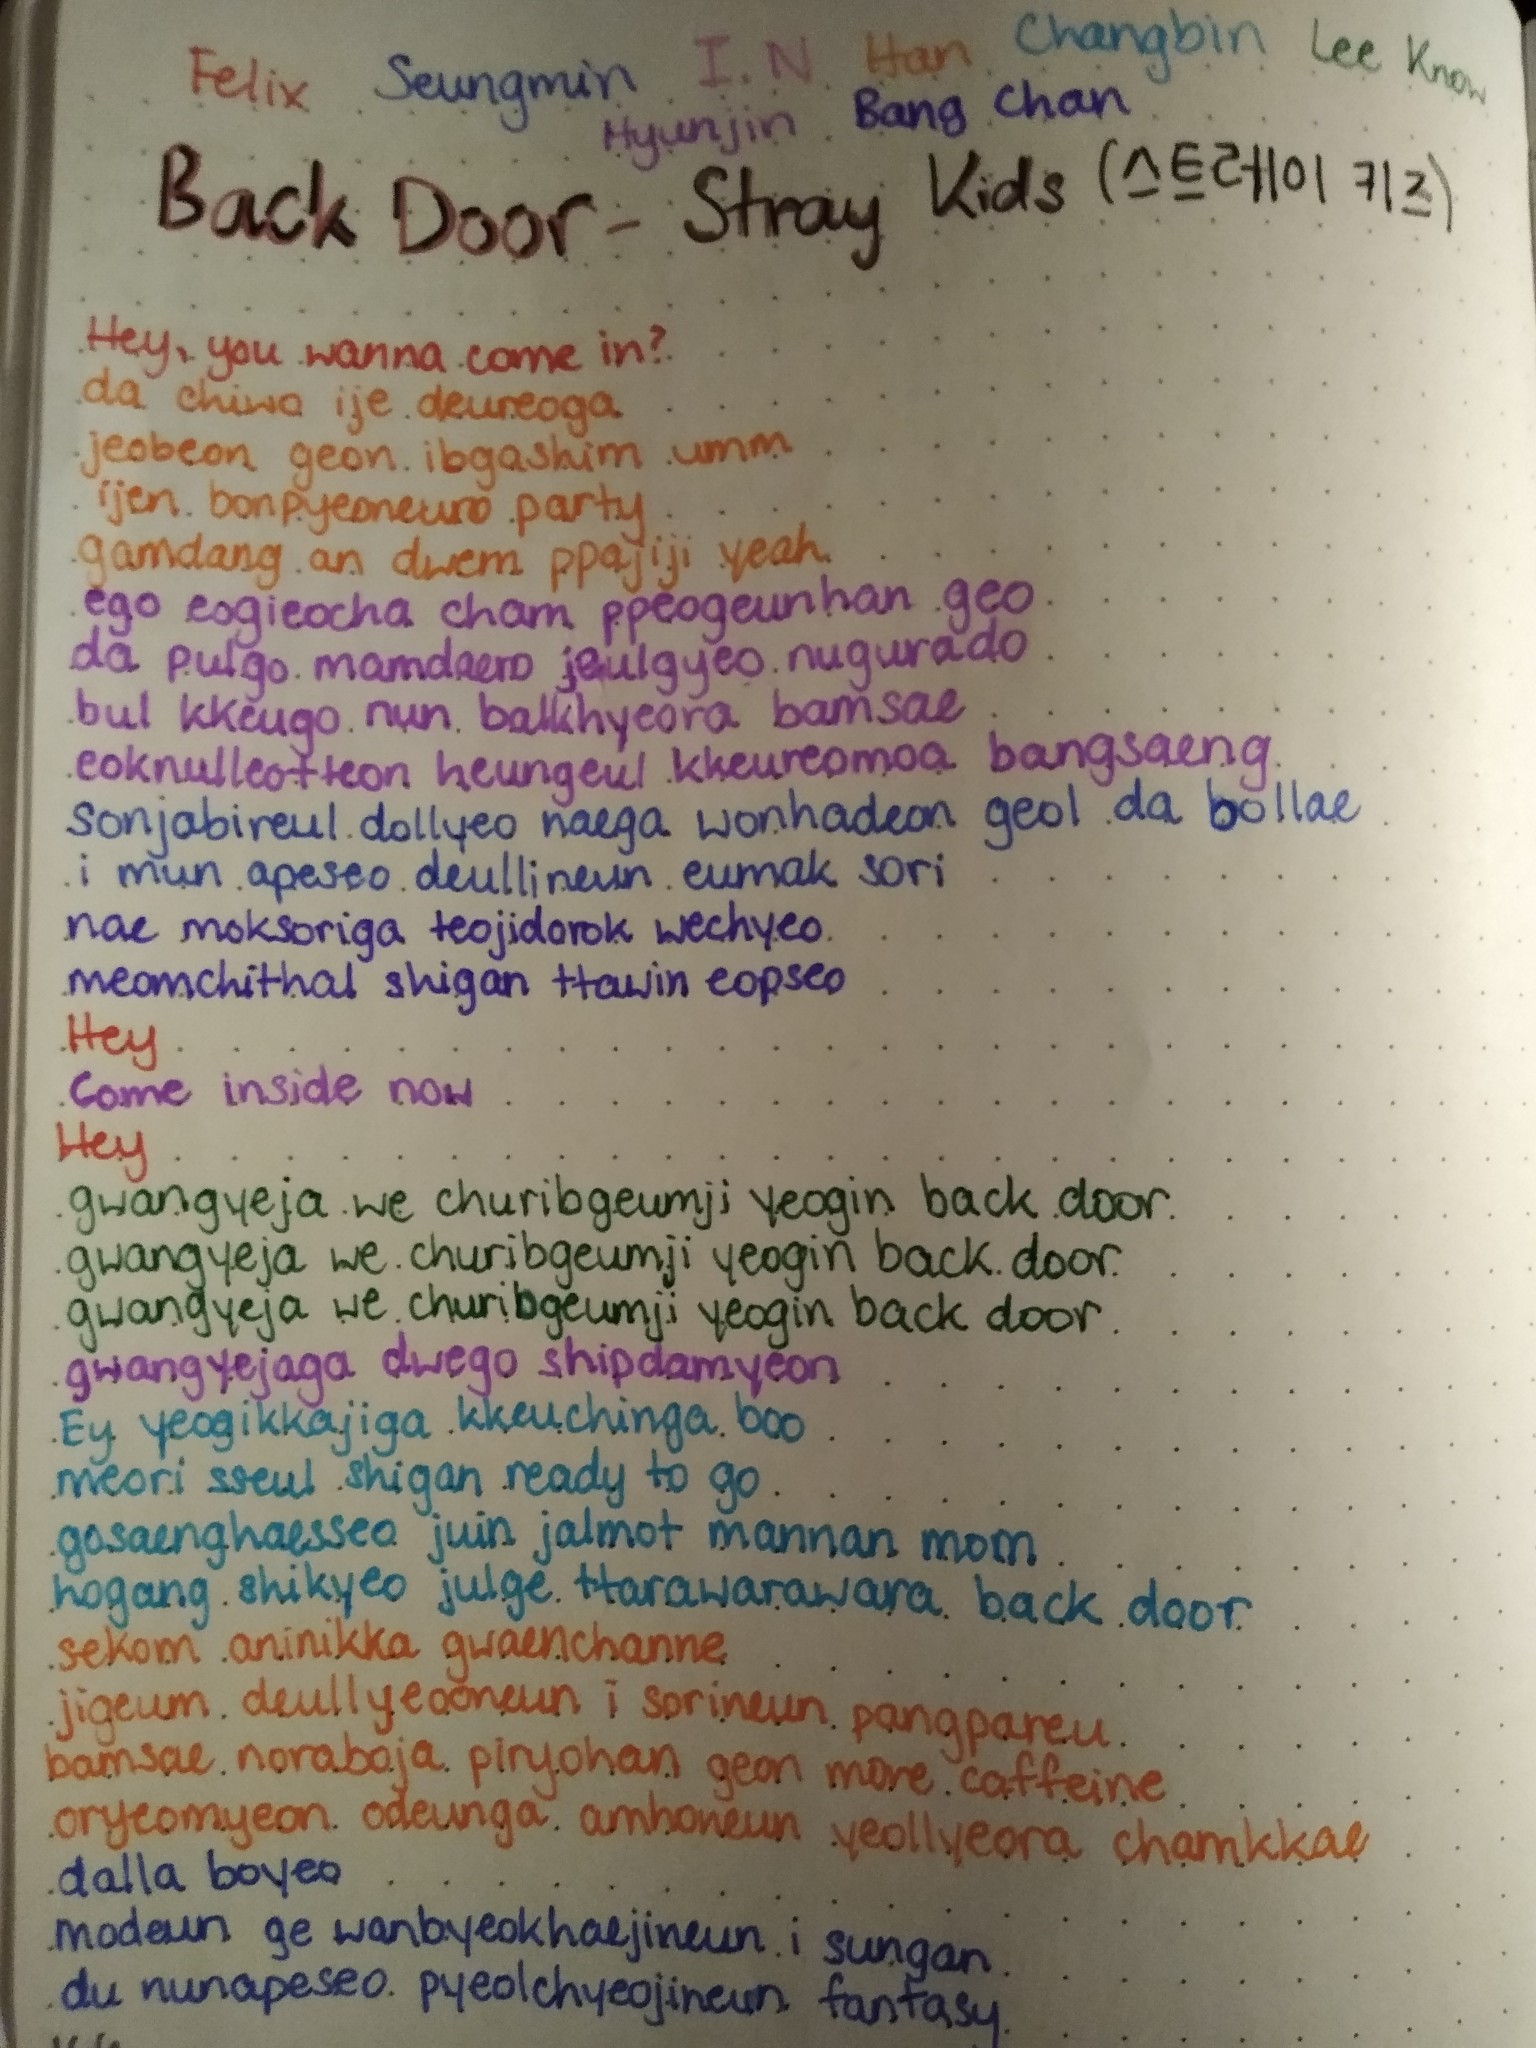 Felix Seungmin I.N Han Changbin Lee Know
Hyunjin Bang Chan
Back Door - Stray Kids (스트레이 키즈)
Hey, you wanna come in?
da chiwo ije deureoga
jeobeon geon ibgashim umm
ijen bonpyeoneuro party
gamdang an dwem ppajiji yeah
ego eogieocha cham ppeogeunhan geo
da pulgo mamdaero jeulgyeo nugurado
bul kkeugo nun balkhyeora bamsae
eoknulleotteon heungeul kkeureomoa bangsaeng
sonjabireul dollyeo naega wonhadeon geol da bollae
i mun apeseo deullineun eumak sori
nae moksoriga teojidorok wechyeo
meomchithal shigan ttawin eopseo
Hey
Come inside now
Hey
gwangyeja we churibgeumji yeogin back door
gwangyeja we churibgeumji yeogin back door
gwangyeja we churibgeumji yeogin back door
gwangyejaga dwego shipdamyeon
Ey yeogikkajiga kkeuchinga boo
meori sseul shigan ready to go
gosaenghaesseo juin jalmot mannan mom
hogang shikyeo julge ttarawarawara back door
sekom aninikka gwaenchanne
jigeum deullyeooneun i sorineun pangpareu
bamsae noraboja piryohan geon more caffeine
oryeomyeon odeunga amhoneun yeollyeora chamkkae
dalla boyeo
modeun ge wanbyeokhaejineun i sungan
du nunapeseo pyeolchyeojineun fantasy